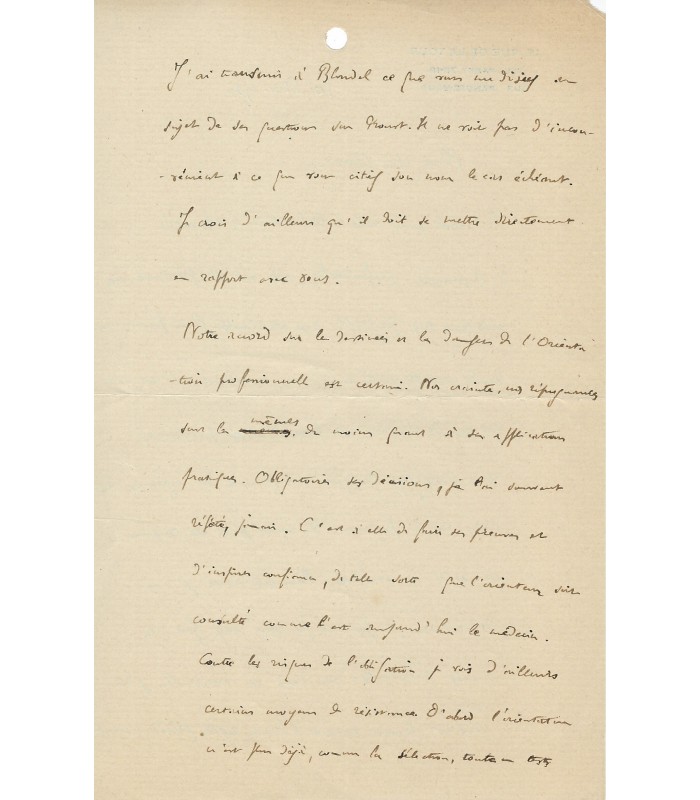 J'ai transmis à Blondel ce que vous me disiez au
sujet de ses questions sur Proust. Il ne voit pas d'incon-
-vénient à ce que vous citiez son nom le cas échéant.
Je crois d'ailleurs qu'il doit se mettre directement
en rapport avec vous.
Notre accord sur les destinées et les dangers de l'Orienta
-tion professionnelle est certain. Nos craintes, nos répugnances
sont les mêmes du moins quant à ses applications
pratiques. Obligatoires ses décisions, je l'ai souvent
répété, jamais. C'est à elle de faire ses preuves et
d'inspirer confiance, de telle sorte que l'orienteur soit
consulté comme l'est aujourd'hui le médecin.
Contre les risques de l'obligation je vois d'ailleurs
certains moyens de résistance. D'abord l'orientation
n'est plus déjà, comme la sélection, toute en tests